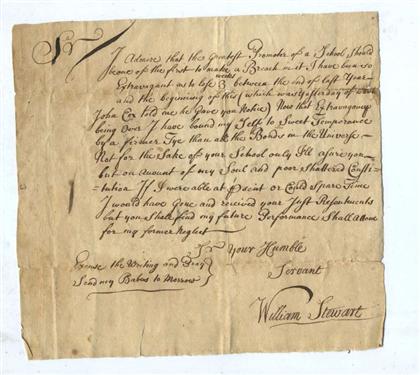 Sr
I Admire that the Greatest Promoter of a School Should
be one of the first to make a Breach in it I have been so
Extravagant as to lose 3 weeks between the end of last Year
and the beginning of this (which was yesterday
John Cox told me he Gave you Notice) Now that Extravagency
being Over I have bound my Self to Sweet Temperance
by a firmer Tye than all the Bonds in the Universe
Not for the Sake of your School only I'll asure you
but on account of my Soul and poor Shattered Consti=
tution If I were able at Present or Could Spare Time
I would have Gone and received your Just Resentments
but you Shall find my future Performance Shall Attone
for my former Neglect
Sr Your Humble
Servant
William Stewart
Excuse the Writing and Pray
Send my Babes to Morrow